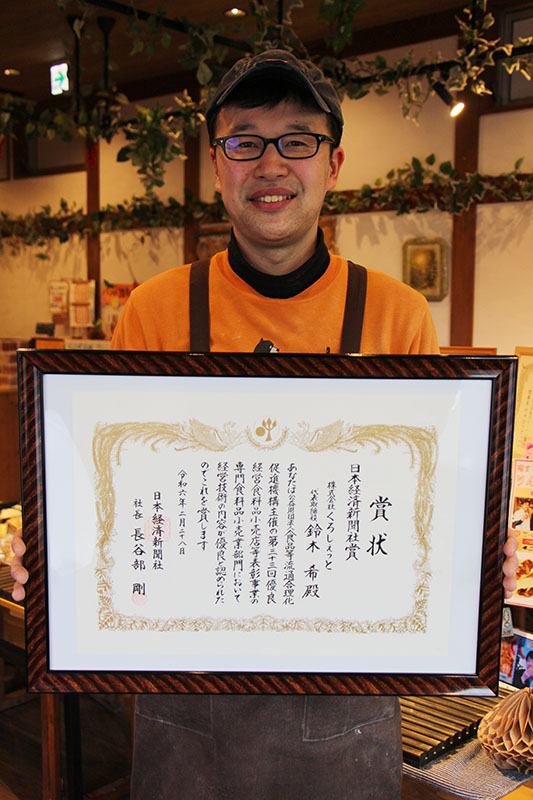 賞状
日本経済新聞社賞
株式会社くろしぇっと
代表取締役 鈴木 希殿
あなたは公益財団法人食品等流通合理化
促進機構主催の第三十三回優良
経営食料品小売店等表彰事業の
専門食料品小売業部門において
経営技術の内容が優良と認められた
のでこれを賞します
令和六年二月二十八日
日本経済新聞社
社長 長谷部 剛